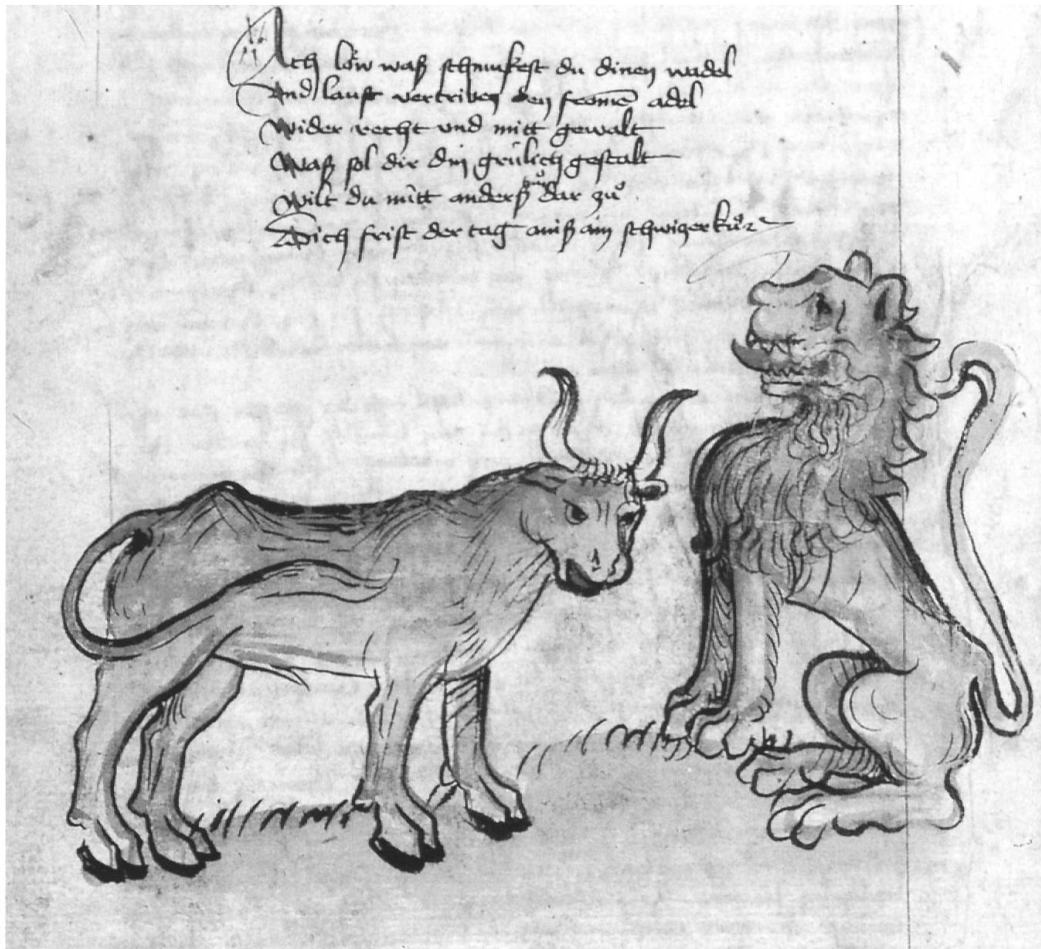 Ach löw waß schmukest du dinen wadel
Und laust vertriben den fromē adel
Wider recht und mitt gewalt
Waß sol dir din grülich gestalt
Wilt du nitt anderß dar zů
Dich frist der tag aniß ain schwizer ků